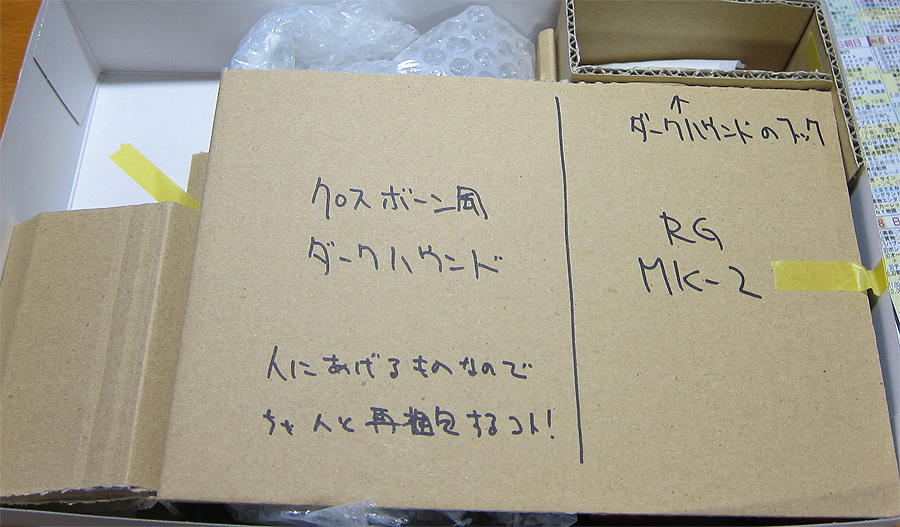 クロスボーン風
ダークハウンド
人にあげるものなので
ちゃんと再梱包するコト!
↑
ダークハウンドのフック
RG
MK-2